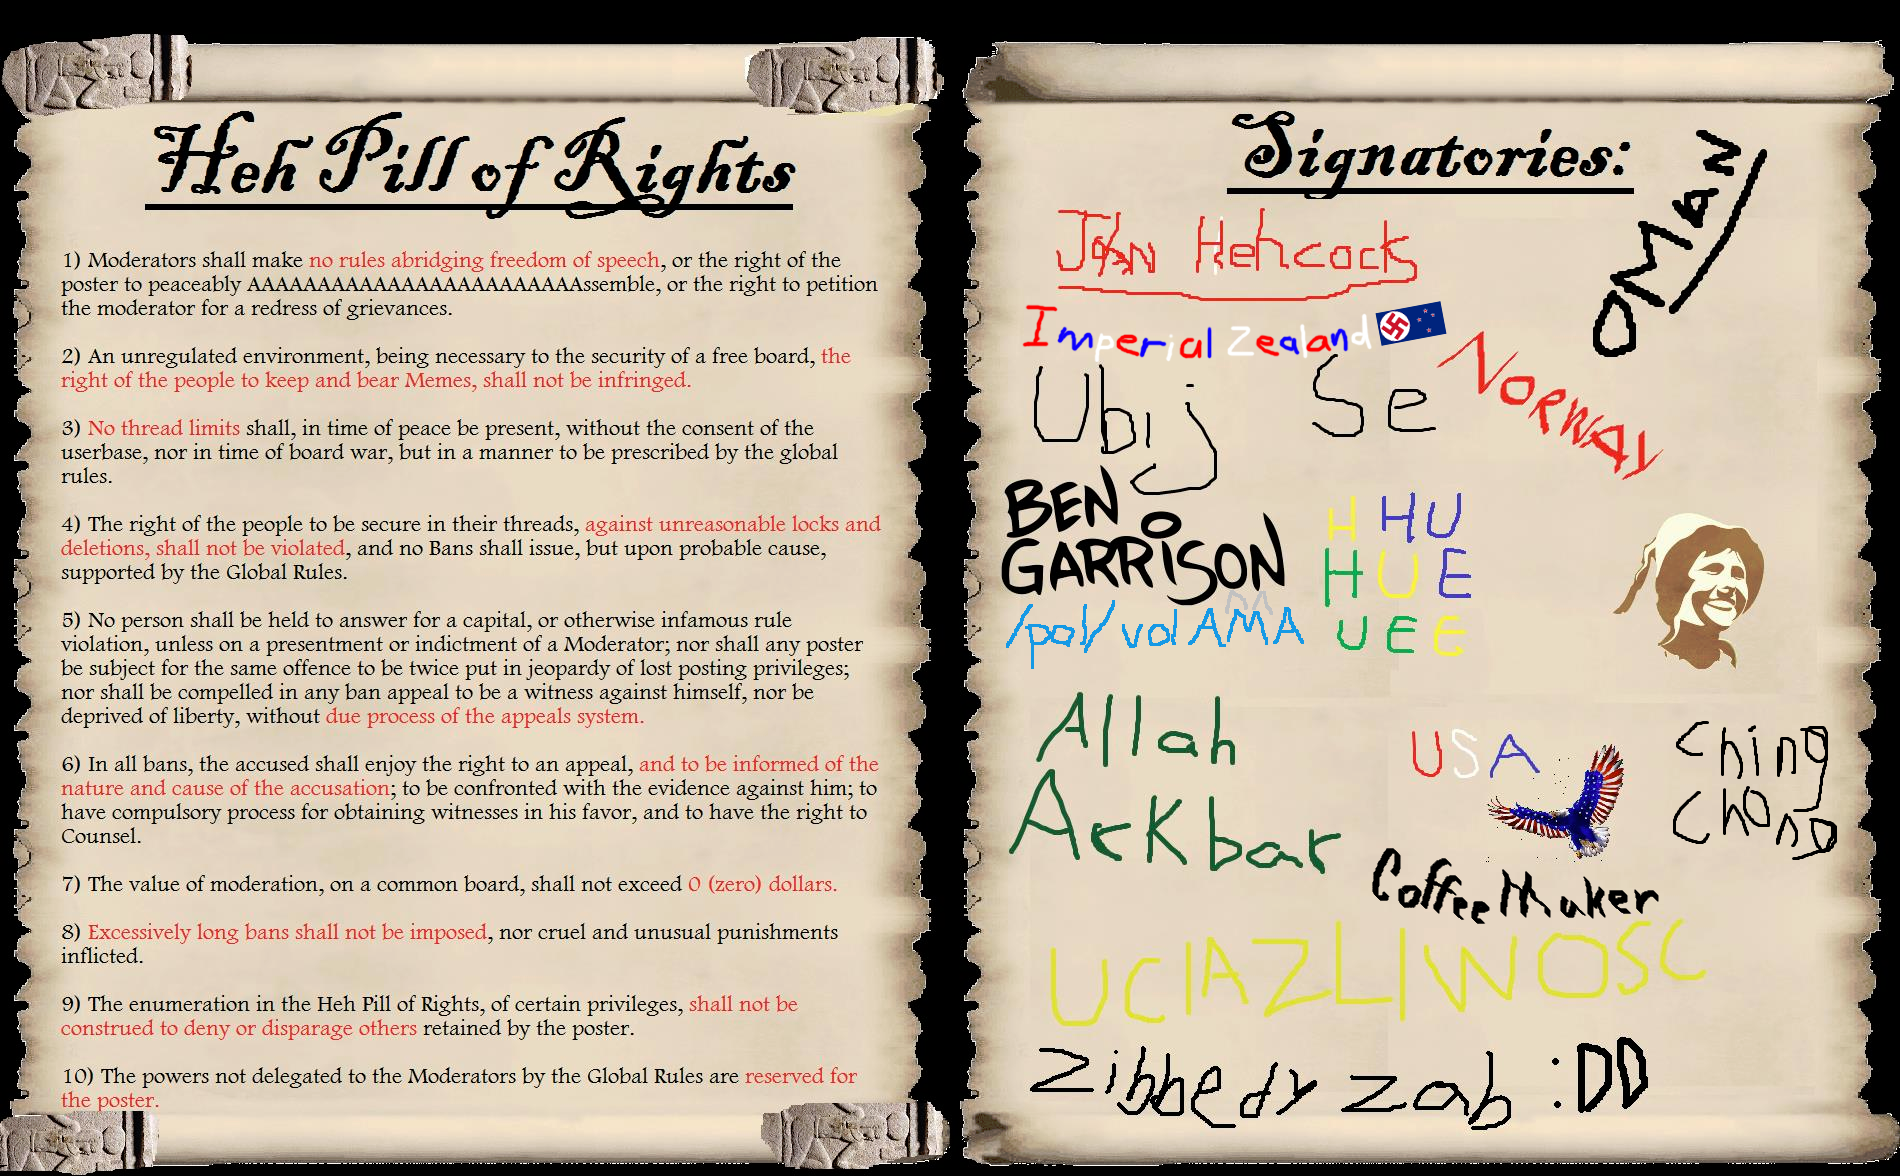 Heh Pill of Rights
1) Moderators shall make no rules abridging freedom of speech, or the right of the
poster to peaceably AAAAAAAAAAAAAAAAAAAAAAAAssemble, or the right to petition
the moderator for a redress of grievances.
2) An unregulated environment, being necessary to the security of a free board, the
right of the people to keep and bear Memes, shall not be infringed.
3) No thread limits shall, in time of peace be present, without the consent of the
userbase, nor in time of board war, but in a manner to be prescribed by the global
rules.
4) The right of the people to be secure in their threads, against unreasonable locks and
deletions, shall not be violated, and no Bans shall issue, but upon probable cause,
supported by the Global Rules.
5) No person shall be held to answer for a capital, or otherwise infamous rule
violation, unless on a presentment or indictment of a Moderator; nor shall any poster
be subject for the same offence to be twice put in jeopardy of lost posting privileges;
nor shall be compelled in any ban appeal to be a witness against himself, nor be
deprived of liberty, without due process of the appeals system.
6) In all bans, the accused shall enjoy the right to an appeal, and to be informed of the
nature and cause of the accusation; to be confronted with the evidence against him; to
have compulsory process for obtaining witnesses in his favor, and to have the right to
Counsel.
7) The value of moderation, on a common board, shall not exceed 0 (zero) dollars.
8) Excessively long bans shall not be imposed, nor cruel and unusual punishments
inflicted.
9) The enumeration in the Heh Pill of Rights, of certain privileges, shall not be
construed to deny or disparage others retained by the poster.
10) The powers not delegated to the Moderators by the Global Rules are reserved for
the poster.
Signatories:
OMan
John Hehcock
Imperial Zealand
Ubij Se
Norway
BEN
GARRISON
H HU
HUE
UEE
/pol/ vol AMA
Allah
Ackbar
USA
Ching
Chong
CoffeeMaker
UCIAZLIWOSC
Zibbedy zab :DD